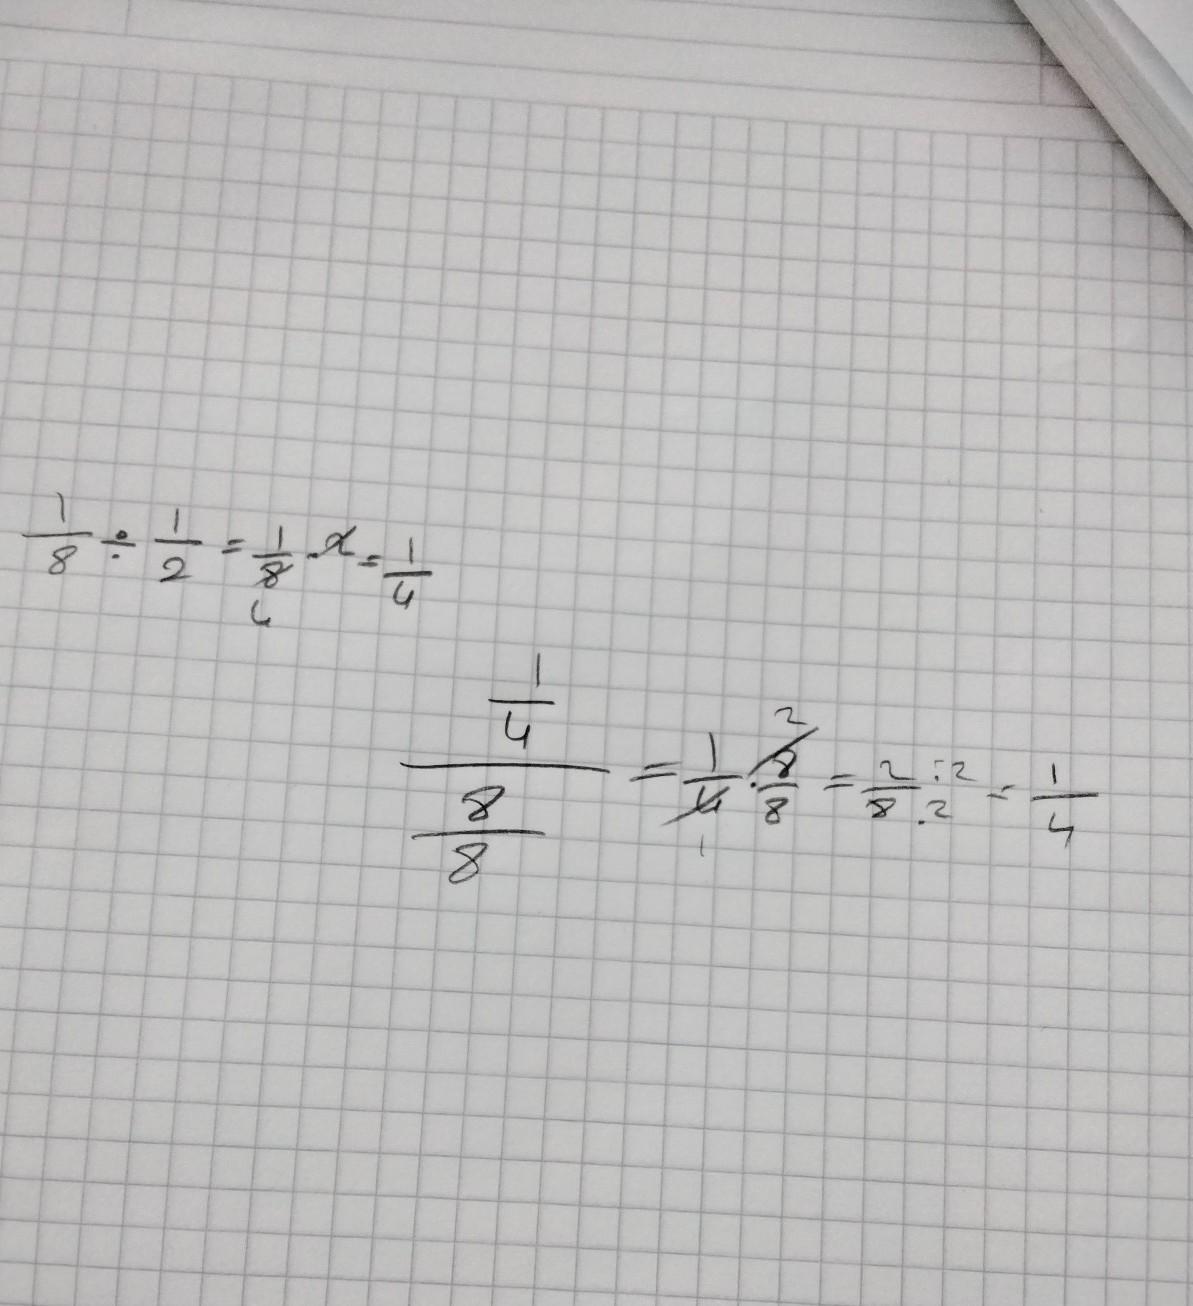 1/8 ÷ 1/2 = 1/8 . 2 = 1/4
4
1/4 / 8/8 = 1/4 . 8/8 = 2/8 :2 .2 = 1/4
2
1